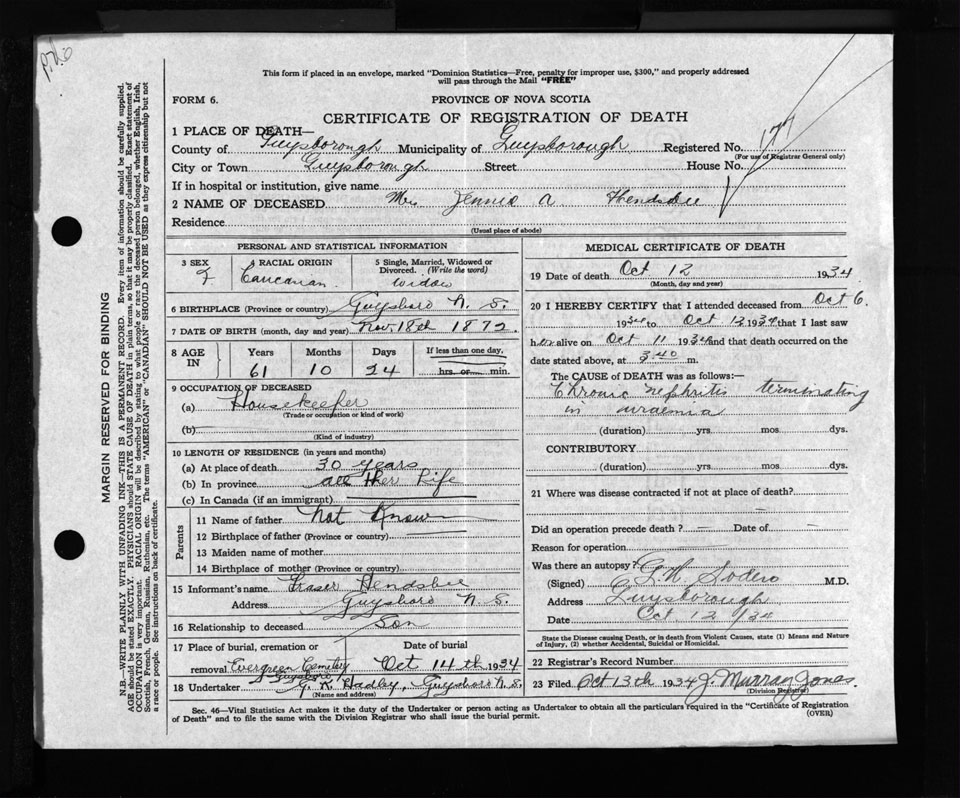 This form if placed in an envelope, marked "Dominion Statistics—Free, penalty for improper use, $300," and properly addressed
will pass through the Mail "FREE"
FORM 6.
PROVINCE OF NOVA SCOTIA
CERTIFICATE OF REGISTRATION OF DEATH
1 PLACE OF DEATH—
County of Guysborough Municipality of Guysborough Registered No. 177
(For use of Registrar General only)
City or Town Guysborough Street House No.
If in hospital or institution, give name
2 NAME OF DECEASED Mrs Jennie A Hendsbee
Residence
(Usual place of abode)
PERSONAL AND STATISTICAL INFORMATION
3 SEX F
4 RACIAL ORIGIN Caucasian.
5 Single, Married, Widowed or Divorced. (Write the word) widow
6 BIRTHPLACE (Province or country) Guysboro N. S.
7 DATE OF BIRTH (month, day and year) Nov. 18th 1872.
8 AGE IN
Years Months Days If less than one day,
61 10 24 hrs. or min.
9 OCCUPATION OF DECEASED
(a) Housekeeper
(Trade or occupation or kind of work)
(b)
(Kind of industry)
10 LENGTH OF RESIDENCE (in years and months)
(a) At place of death 30 years
(b) In province all Her Life
(c) In Canada (if an immigrant)
Parents
11 Name of father Not Know
12 Birthplace of father (Province or country)
13 Maiden name of mother
14 Birthplace of mother (Province or country)
15 Informant's name Fraser Hendsbee
Address Guysboro N. S.
16 Relationship to deceased Son
17 Place of burial, cremation or Date of burial
removal Evergreen Cemetery Oct 14th 1934
Guysboro
18 Undertaker G. K. Hadley, Guysboro N. S.
(Name and address)
MEDICAL CERTIFICATE OF DEATH
19 Date of death Oct 12 1934
(Month, day and year)
20 I HEREBY CERTIFY that I attended deceased from Oct 6.
1934 to Oct 12 1934 that I last saw
her alive on Oct 11 1934 and that death occurred on the
date stated above, at 3 40 m.
The CAUSE of DEATH was as follows:—
Chronic nephritis terminating
in uraemia
(duration) yrs. mos. dys.
CONTRIBUTORY
(duration) yrs. mos. dys.
21 Where was disease contracted if not at place of death?
Did an operation precede death ? — Date of —
Reason for operation
Was there an autopsy?
(Signed) G. N. Sodero M.D.
Address Guysborough
Date Oct 12 /34
State the Disease causing Death, or in death from Violent Causes, state (1) Means and Nature
of Injury, (2) whether Accidental, Suicidal or Homicidal.
22 Registrar's Record Number
23 Filed Oct 13th 1934 J. Murray Jones.
(Division Registrar)
Sec. 46—Vital Statistics Act makes it the duty of the Undertaker or person acting as Undertaker to obtain all the particulars required in the "Certificate of Registration
of Death" and to file the same with the Division Registrar who shall issue the burial permit.
(OVER)
MARGIN RESERVED FOR BINDING
N.B.—WRITE PLAINLY WITH UNFADING INK—THIS IS A PERMANENT RECORD. Every item of information should be carefully supplied.
AGE should be stated EXACTLY. PHYSICIANS should STATE CAUSE OF DEATH in plain terms, so that it may be properly classified. Exact statement of
OCCUPATION is very important. RACIAL ORIGIN will be described by stating to what people or race the deceased person belonged, whether English, Irish,
Scottish, French, German, Russian, Ruthenian, etc. The terms "AMERICAN" or "CANADIAN" SHOULD NOT BE USED as they express citizenship but not
a race or people. See instructions on back of certificate.